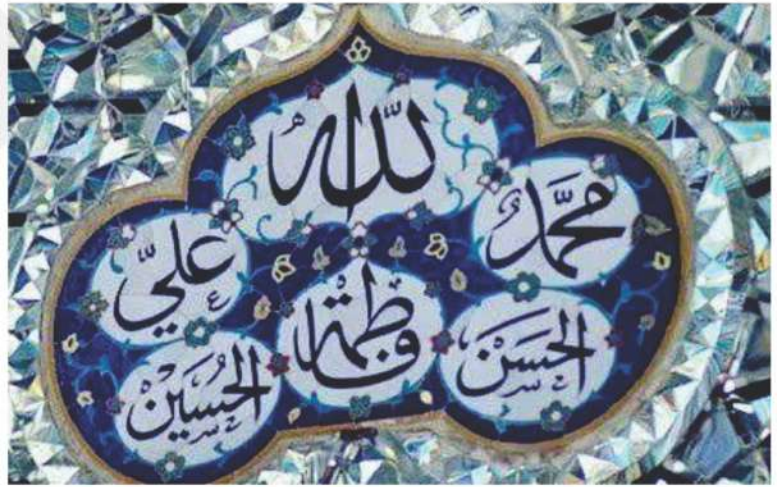 الله
محمّد
عليّ
فاطمة
الحسن
الحسين